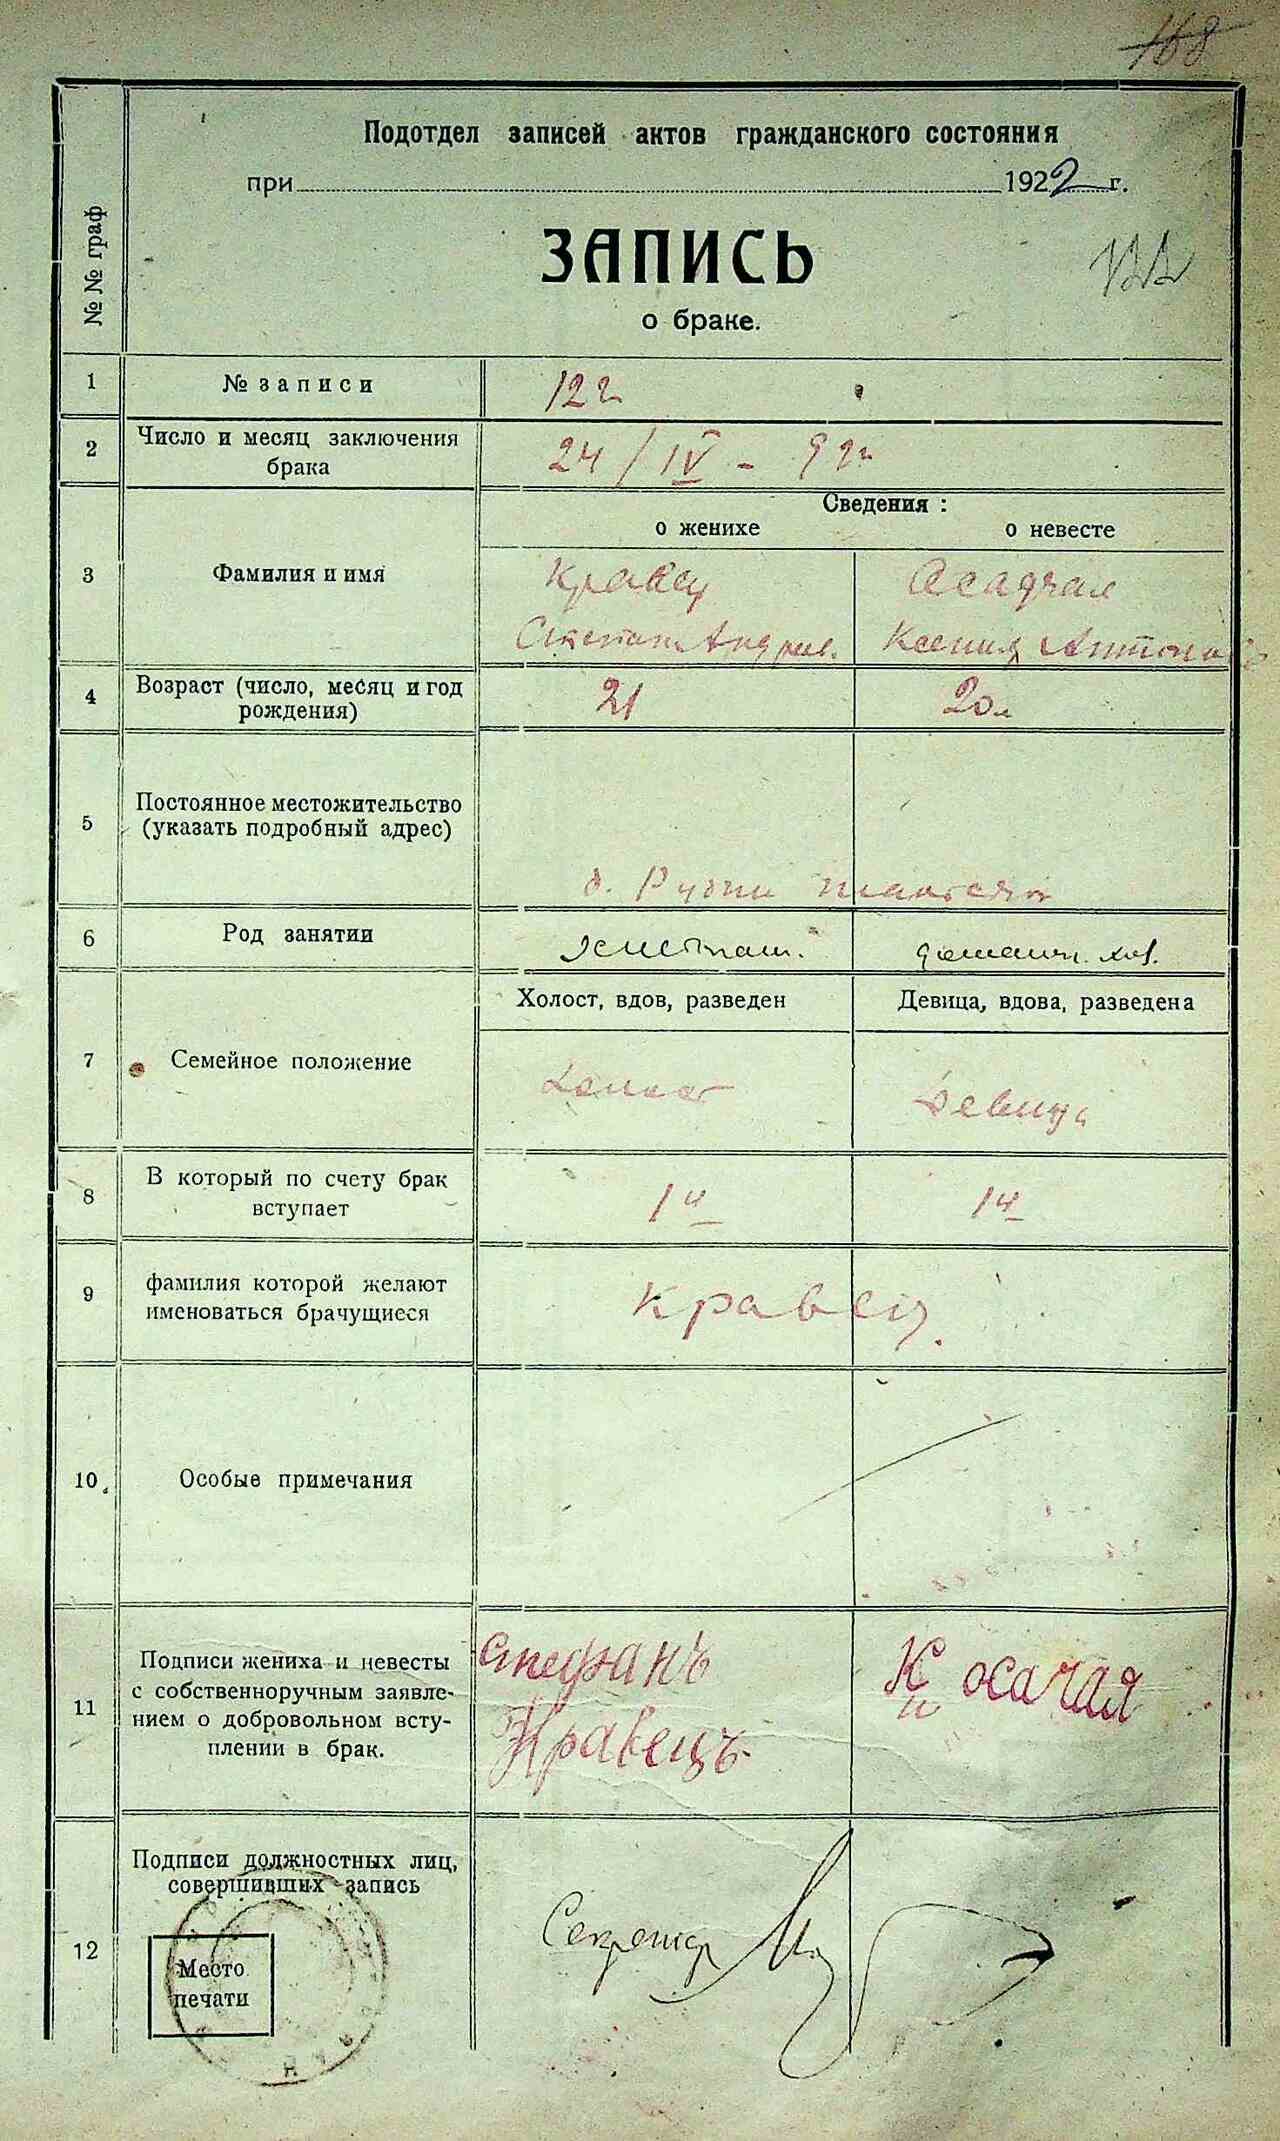 168
Подотдел записей актов гражданского состояния
при 1922 г.
№№ граф
ЗАПИСЬ
122
о браке.
1 № записи 122
2 Число и месяц заключения
брака
24/IV - 922
Сведения:
о женихе о невесте
3 Фамилия и имя
Кравец Осадчая
Степан Андреев. Ксения Антонов
4 Возраст (число, месяц и год
рождения)
21 20 л
5 Постоянное местожительство
(указать подробный адрес)
6 Род занятии домашн. хоз.
Холост, вдов, разведен Девица, вдова, разведена
7 Семейное положение
холост девица
8 В который по счету брак
вступает
1й 1й
9 фамилия которой желают
именоваться брачущиеся
Кравец.
10 Особые примечания
11 Подписи жениха и невесты
с собственноручным заявле-
нием о добровольном всту-
плении в брак.
Стефанъ
Кравецъ
К осачая
12 Подписи должностных лиц,
совершивших запись
Место
печати
Секретар